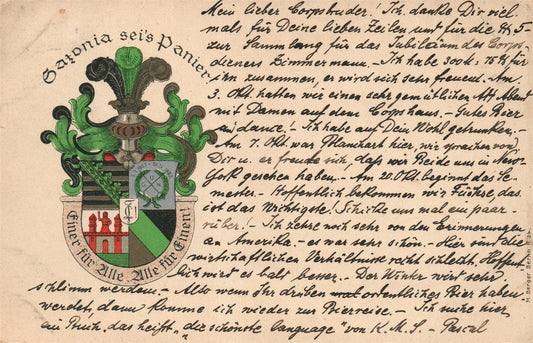 Saxonia sei's Panier
Mein lieber Corpsbruder! Ich danke Dir viel-
mals für Deine lieben Zeilen und für die $ 5-
zur Sammlung für das Jubiläum des Corps-
dieners Zimmermann. - Ich habe 300 M. für
ihn zusammen, er wird sich sehr freuen. Am
3. Okt. hatten wir einen sehr gemütlichen Abend
mit Damen auf dem Corpshaus. - Gutes Bier
und dance! - Ich habe auf Dein Wohl getrunken. -
Am 7. Okt. war Planckert hier, wir sprachen von
Dir u. er freute sich, daß wir Beide uns in New-
york gesehen haben. - Am 20. Okt. beginnt das Se-
mester. - Hoffentlich bekommen wir Füchse, das
ist das Wichtigste! Schicke uns mal ein paar
rüber! - Ich zehre noch sehr von den Erinnerungen
an Amerika. - es war sehr schön. - Hier sind die
wirtschaftlichen Verhältnisse recht schlecht. Hoffent-
lich wird es bald besser. - Der Winter wird sehr
schlimm werden. - Also wenn Ihr drüben mal ordentliches Bier haben
werdet, dann komme ich wieder zur Bierreise. - Ich suche hier
ein Buch, das heißt „die schönste language" von K.M.S. - Pascal
Einer für Alle Alle für Einen!
M. Berger Berlin